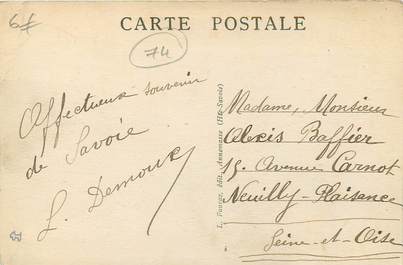 6f
CARTE POSTALE
74
Affectueux souvenir
de Savoie
L. Demoux
L. Fauraz, édit. Annemasse (Hte-Savoie)
Madame, Monsieur
Alexis Baffier
15. Avenue Carnot
Neuilly-Plaisance
Seine-et-Oise